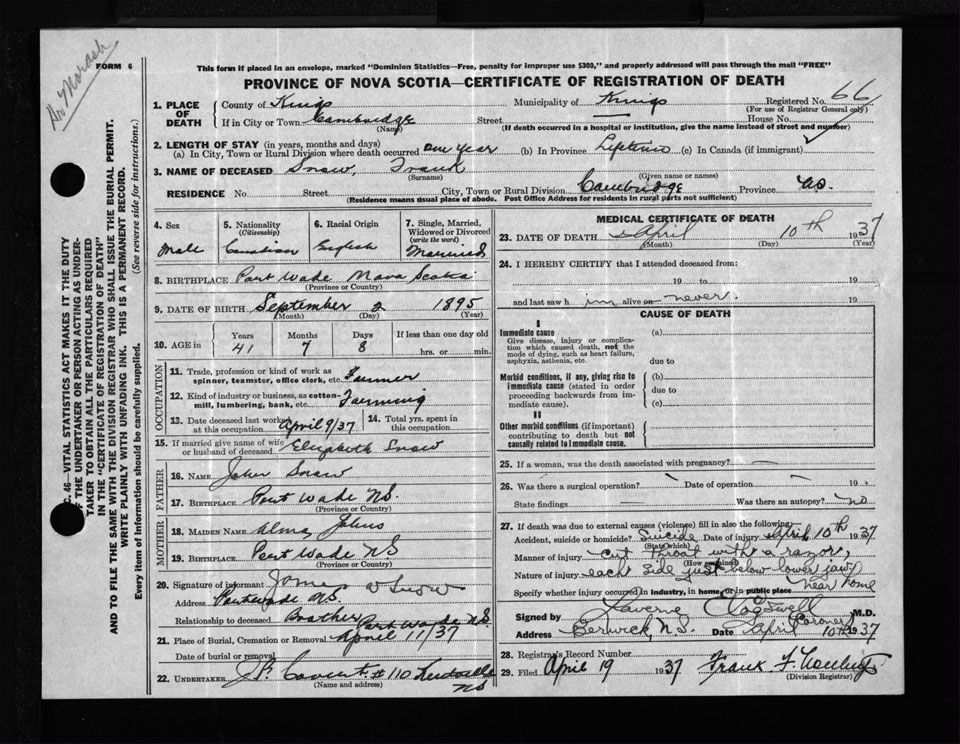 Dr Morash
FORM 6
This form if placed in an envelope, marked "Dominion Statistics—Free, penalty for improper use $300," and properly addressed will pass through the mail "FREE"
PROVINCE OF NOVA SCOTIA—CERTIFICATE OF REGISTRATION OF DEATH
1. PLACE OF DEATH County of Kings Municipality of Kings Registered No. 66
(For use of Registrar General only)
If in City or Town Cambridge Street House No.
(Name) (If death occurred in a hospital or institution, give the name instead of street and number)
2. LENGTH OF STAY (in years, months and days)
(a) In City, Town or Rural Division where death occurred one year (b) In Province Lifetime (c) In Canada (if immigrant)
3. NAME OF DECEASED Snow, Frank
(Surname) (Given name or names)
RESIDENCE No Street City, Town or Rural Division Cambridge Province NS.
(Residence means usual place of abode. Post Office Address for residents in rural parts not sufficient)
4. Sex Male
5. Nationality (Citizenship) Canadian
6. Racial Origin English
7. Single, Married, Widowed or Divorced (write the word) Married
8. BIRTHPLACE Port Wade Nova Scotia
(Province or Country)
9. DATE OF BIRTH September 2 1895
(Month) (Day) (Year)
10. AGE in Years Months Days If less than one day old
41 7 8 hrs. or min.
OCCUPATION
11. Trade, profession or kind of work as spinner, teamster, office clerk, etc. Farmer
12. Kind of industry or business, as cotton-mill, lumbering, bank, etc. Farming
13. Date deceased last worked at this occupation April 9/37
14. Total yrs. spent in this occupation
15. If married give name of wife or husband of deceased Elizabeth Snow
FATHER
16. NAME John Snow
17. BIRTHPLACE Port Wade NS.
(Province or Country)
MOTHER
18. MAIDEN NAME Alma Johns
19. BIRTHPLACE Port Wade NS
(Province or Country)
20. Signature of informant James W Snow
Address Port Wade NS
Relationship to deceased Brother
21. Place of Burial, Cremation or Removal Port Wade N.S.
Date of burial or removal April 11/37
22. UNDERTAKER J.P. #110 NS
(Name and address)
MEDICAL CERTIFICATE OF DEATH
23. DATE OF DEATH April 10th 1937
(Month) (Day) (Year)
24. I HEREBY CERTIFY that I attended deceased from:
19 to 19
and last saw him alive on never. 19
CAUSE OF DEATH
I
Immediate cause (a)
Give disease, injury or complication which caused death, not the mode of dying, such as heart failure, asphyxia, asthenia, etc.
due to
Morbid conditions, if any, giving rise to immediate cause (stated in order proceeding backwards from immediate cause).
(b)
due to
(c)
II
Other morbid conditions (if important) contributing to death but not causally related to immediate cause.
25. If a woman, was the death associated with pregnancy? —
26. Was there a surgical operation? — Date of operation — 19
State findings Was there an autopsy? no
27. If death was due to external causes (violence) fill in also the following:
Accident, suicide or homicide? Suicide Date of injury April 10th 1937
(State which)
Manner of injury cut throat with a razor,
(How sustained)
Nature of injury each side just below lower jaw
Specify whether injury occurred in industry, in home, or in public place near home
Signed by Laverne Cogswell M.D.
Coroner
Address Berwick, N.S. Date April 10th 1937
28. Registrar's Record Number
29. Filed April 19 1937 Frank F.
(Division Registrar)
C. 46—VITAL STATISTICS ACT MAKES IT THE DUTY
OF THE UNDERTAKER OR PERSON ACTING AS UNDER-
TAKER TO OBTAIN ALL THE PARTICULARS REQUIRED
IN THE "CERTIFICATE OF REGISTRATION OF DEATH"
AND TO FILE THE SAME WITH THE DIVISION REGISTRAR WHO SHALL ISSUE THE BURIAL PERMIT.
WRITE PLAINLY WITH UNFADING INK. THIS IS A PERMANENT RECORD.
Every item of information should be carefully supplied. (See reverse side for instructions.)